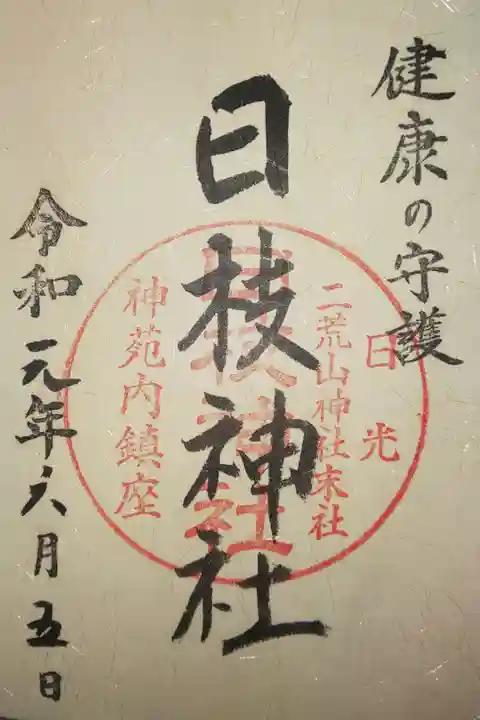 健康の守護
日枝神社
令和元年六月五日
日光
二荒山神社末社
日枝神社
神苑内鎮座